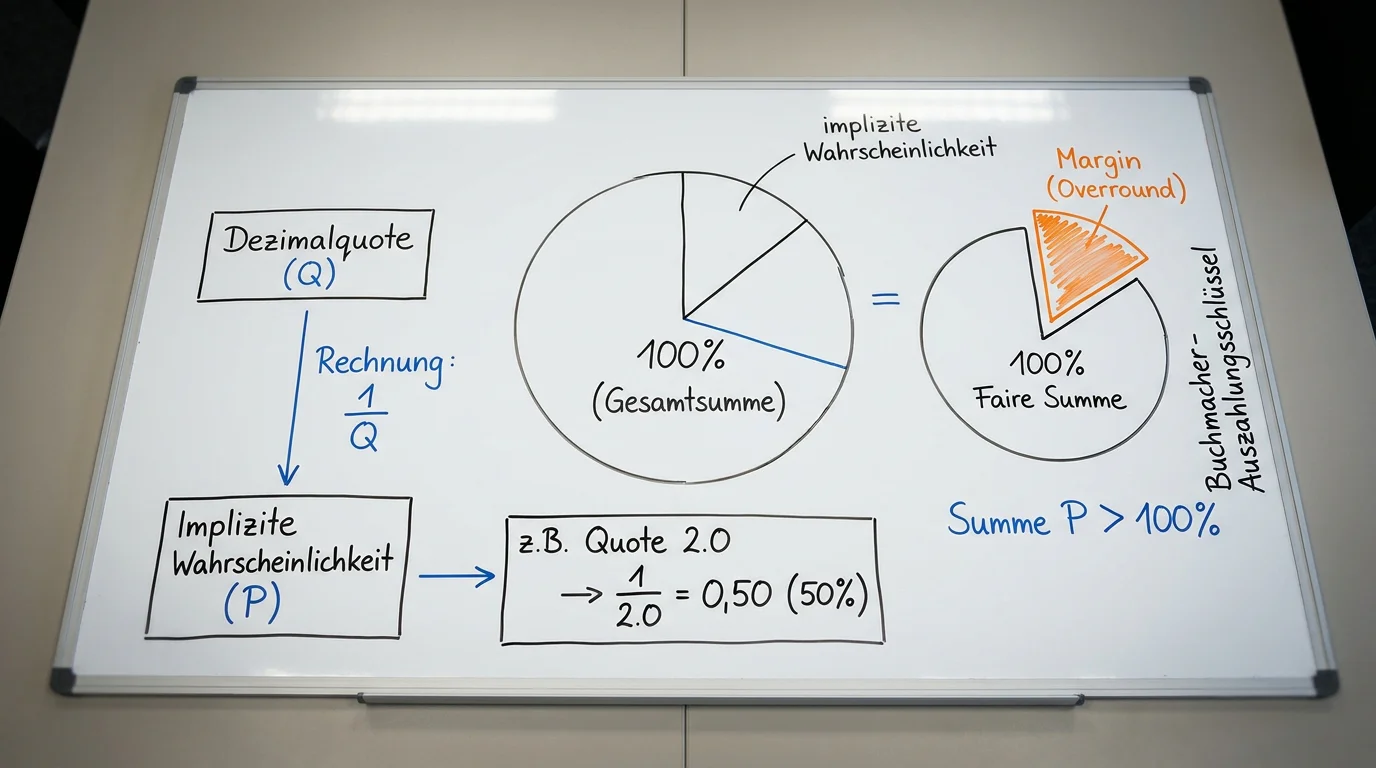 Dezimalquote
(Q)
Rechnung:
1
Q
Implizite
Wahrscheinlichkeit
(P)
z.B. Quote 2.0
→ 1
2.0
= 0,50 (50%)
implizite
Wahrscheinlichkeit
100%
(Gesamtsumme)
=
Margin
(Overround)
100%
Faire Summe
Buchmacher-
Auszahlungsschlüssel
Summe P > 100%